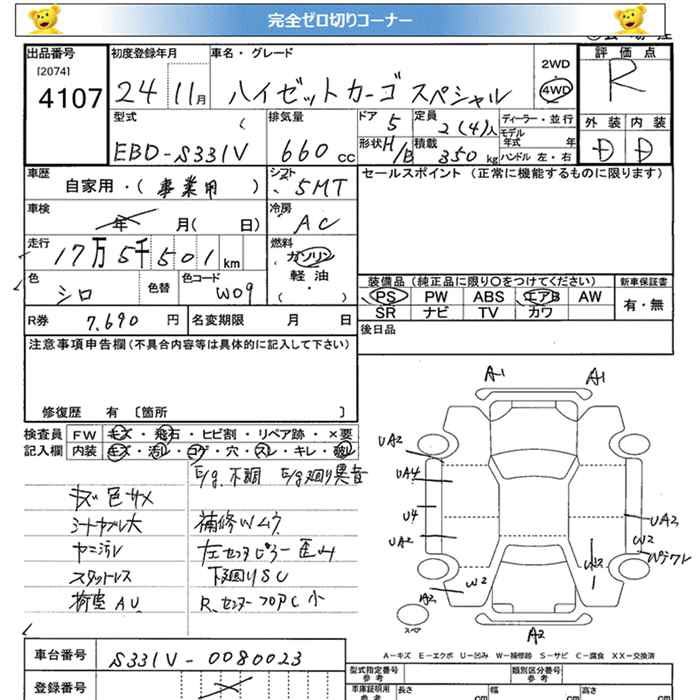 完全ゼロ切りコーナー
出品番号 初度登録年月 車名・グレード 2WD 評価点
[2074]
4107 24 11月 ハイゼットカーゴ スペシャル 4WD R
型式 排気量 ドア 5 定員 2(4)人 ディーラー・並行 外装 内装
モデル年式 年
EBD-S331V 660cc 形状 H/B 積載 350kg ハンドル 左・右 D D
車歴 自家用・(事業用) シフト 5MT セールスポイント(正常に機能するものに限ります)
車検 年 月( 日) 冷房 AC
走行 17万5千501km 燃料 ガソリン
軽油
(・)
色 シロ 色替 色コード W09
装備品(純正品に限り○をつけてください) 新車保証書
PS PW ABS エアB AW 有・無
SR ナビ TV カワ
R券 7,690円 名変期限 月 日 後日品
注意事項申告欄(不具合内容等は具体的に記入して下さい)
修復歴 有 〔箇所 〕
検査員 FW キズ・飛石・ヒビ割・リペア跡・×要
記入欄 内装 キズ・汚レ・コゲ・穴・スレ・キレ・破レ
E/g.不調 E/g廻り異音
キズ 色サメ
シートヤブレ大 補修Wムラ
ヤニ汚レ 左センタピラー歪ミ
スタットレス 下廻りSC
荷室AU R.センターフロアC小
A1 A1
UA2
UA4
U4
UA2
UA2
W2
W2
W2
A2
A2
スペア
A−キズ E−エクボ U−凹み W−補修跡 S−サビ C−腐食 XX−交換済
車台番号 S331V-0080023
登録番号
型式指定番号 参考 類別区分番号 参考
車庫証明用 参考 長さ cm 幅 cm 高さ cm